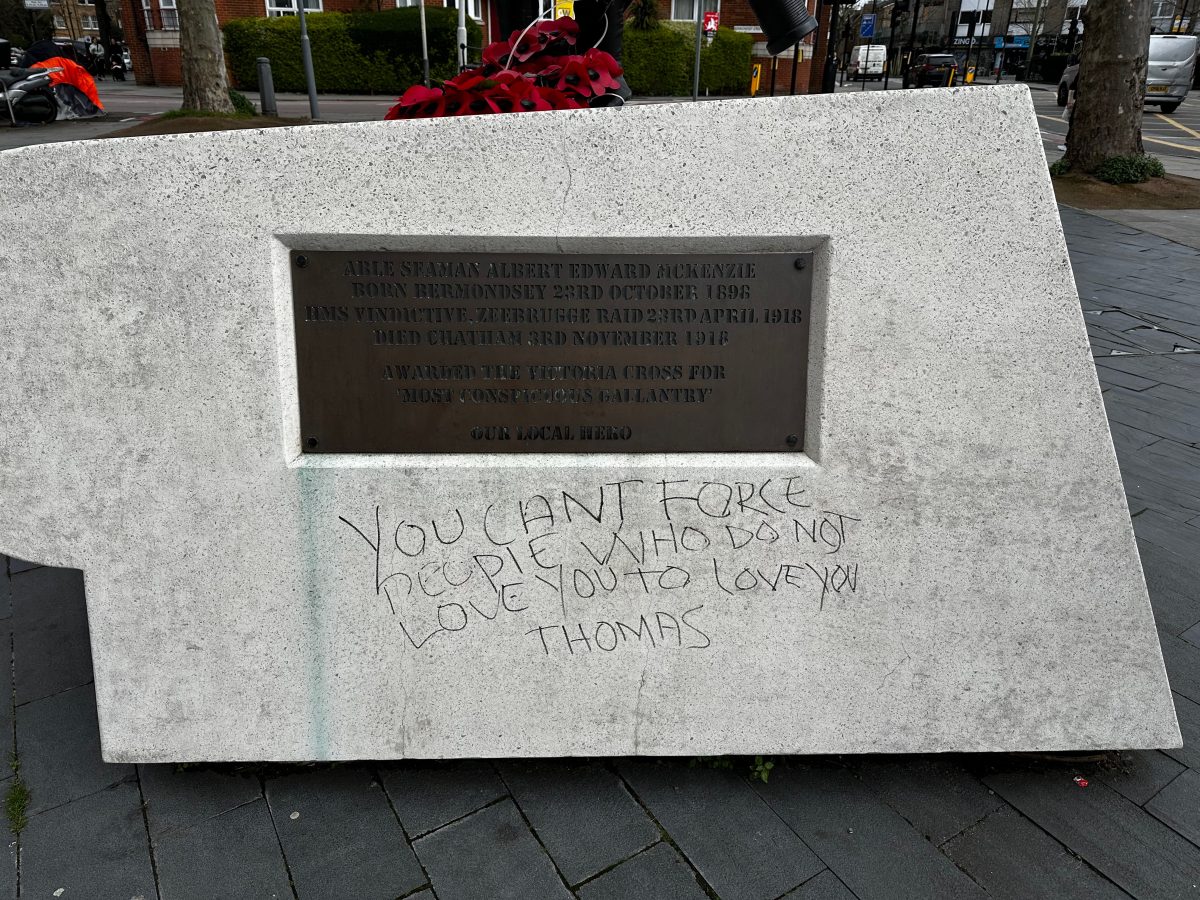 ABLE SEAMAN ALBERT EDWARD MCKENZIE
BORN BERMONDSEY 23RD OCTOBER 1898
HMS VINDICTIVE, ZEEBRUGGE RAID 23RD APRIL 1918
DIED CHATHAM 3RD NOVEMBER 1918
AWARDED THE VICTORIA CROSS FOR
'MOST CONSPICUOUS GALLANTRY'
OUR LOCAL HERO
YOU CANT FORCE
PEOPLE WHO DO NOT
LOVE YOU TO LOVE YOU
THOMAS